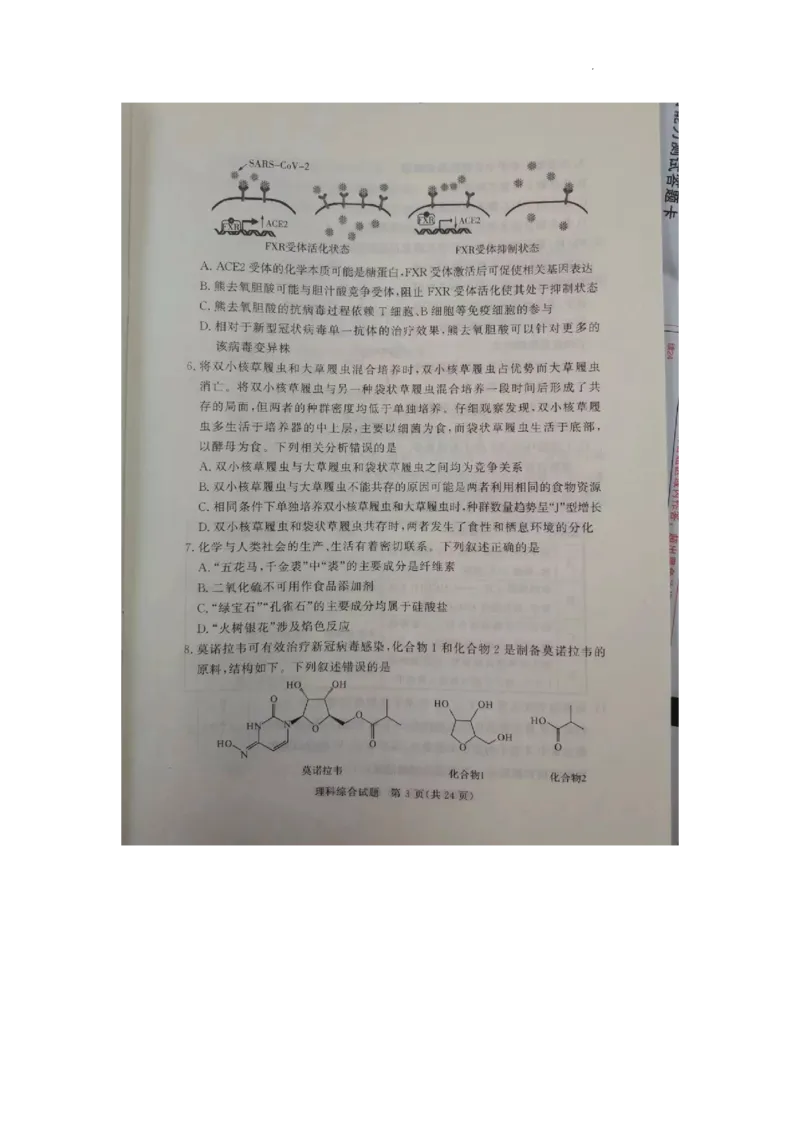 能力测试答题卡
SARS-CoV-2
FXR
ACE2
FXR
ACE2
FXR受体活化状态
FXR受体抑制状态
A. ACE2受体的化学本质可能是糖蛋白,FXR受体激活后可促使相关基因表达
B. 熊去氧胆酸可能与胆汁酸竞争受体,阻止FXR受体活化使其处于抑制状态
C. 熊去氧胆酸的抗病毒过程依赖T细胞、B细胞等免疫细胞的参与
D. 相对于新型冠状病毒单一抗体的治疗效果,熊去氧胆酸可以针对更多的
该病毒变异株
6. 将双小核草履虫和大草履虫混合培养时,双小核草履虫占优势而大草履虫
消亡。将双小核草履虫与另一种袋状草履虫混合培养一段时间后形成了共
存的局面,但两者的种群密度均低于单独培养。仔细观察发现,双小核草履
虫多生活于培养器的中上层,主要以细菌为食,而袋状草履虫生活于底部,
以酵母为食。下列相关分析错误的是
A. 双小核草履虫与大草履虫和袋状草履虫之间均为竞争关系
B. 双小核草履虫与大草履虫不能共存的原因可能是两者利用相同的食物资源
C. 相同条件下单独培养双小核草履虫和大草履虫时,种群数量趋势呈“J”型增长
D. 双小核草履虫和袋状草履虫共存时,两者发生了食性和栖息环境的分化
7. 化学与人类社会的生产、生活有着密切联系。下列叙述正确的是
A. “五花马,千金裘”中“裘”的主要成分是纤维素
B. 二氧化硫不可用作食品添加剂
C. “绿宝石”“孔雀石”的主要成分均属于硅酸盐
D. “火树银花”涉及焰色反应
8. 莫诺拉韦可有效治疗新冠病毒感染,化合物1和化合物2是制备莫诺拉韦的
原料,结构如下。下列叙述错误的是
HO OH
O
HN N O O
HO N O
莫诺拉韦
HO OH
OH
O
化合物1
HO
O
化合物2
理科综合试题 第3页(共24页)